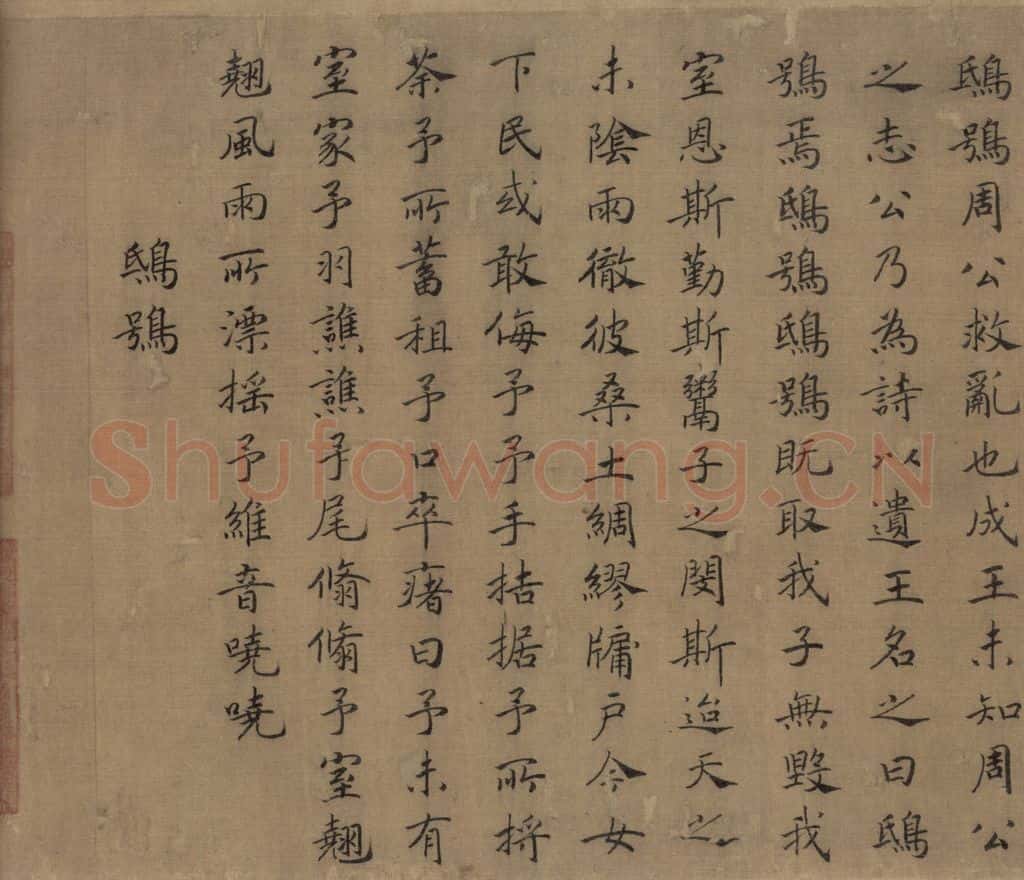 鴟鴞周公救亂也成王未知周公
之志公乃為詩以遺王名之曰鴟
鴞焉鴟鴞鴟鴞既取我子無毀我
室恩斯勤斯鬻子之閔斯迨天之
未陰雨徹彼桑土綢繆牖戶今女
下民或敢侮予予手拮据予所捋
荼予所蓄租予口卒瘏曰予未有
室家予羽譙譙予尾翛翛予室翹
翹風雨所漂搖予維音嘵嘵
鴟鴞
Shufawang.CN